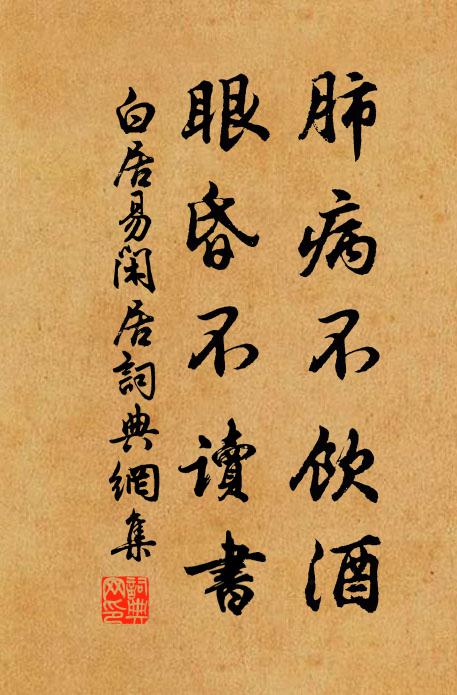 肺病不飲酒
眼昏不讀書
白居易閑居詞典網集
詞典網印